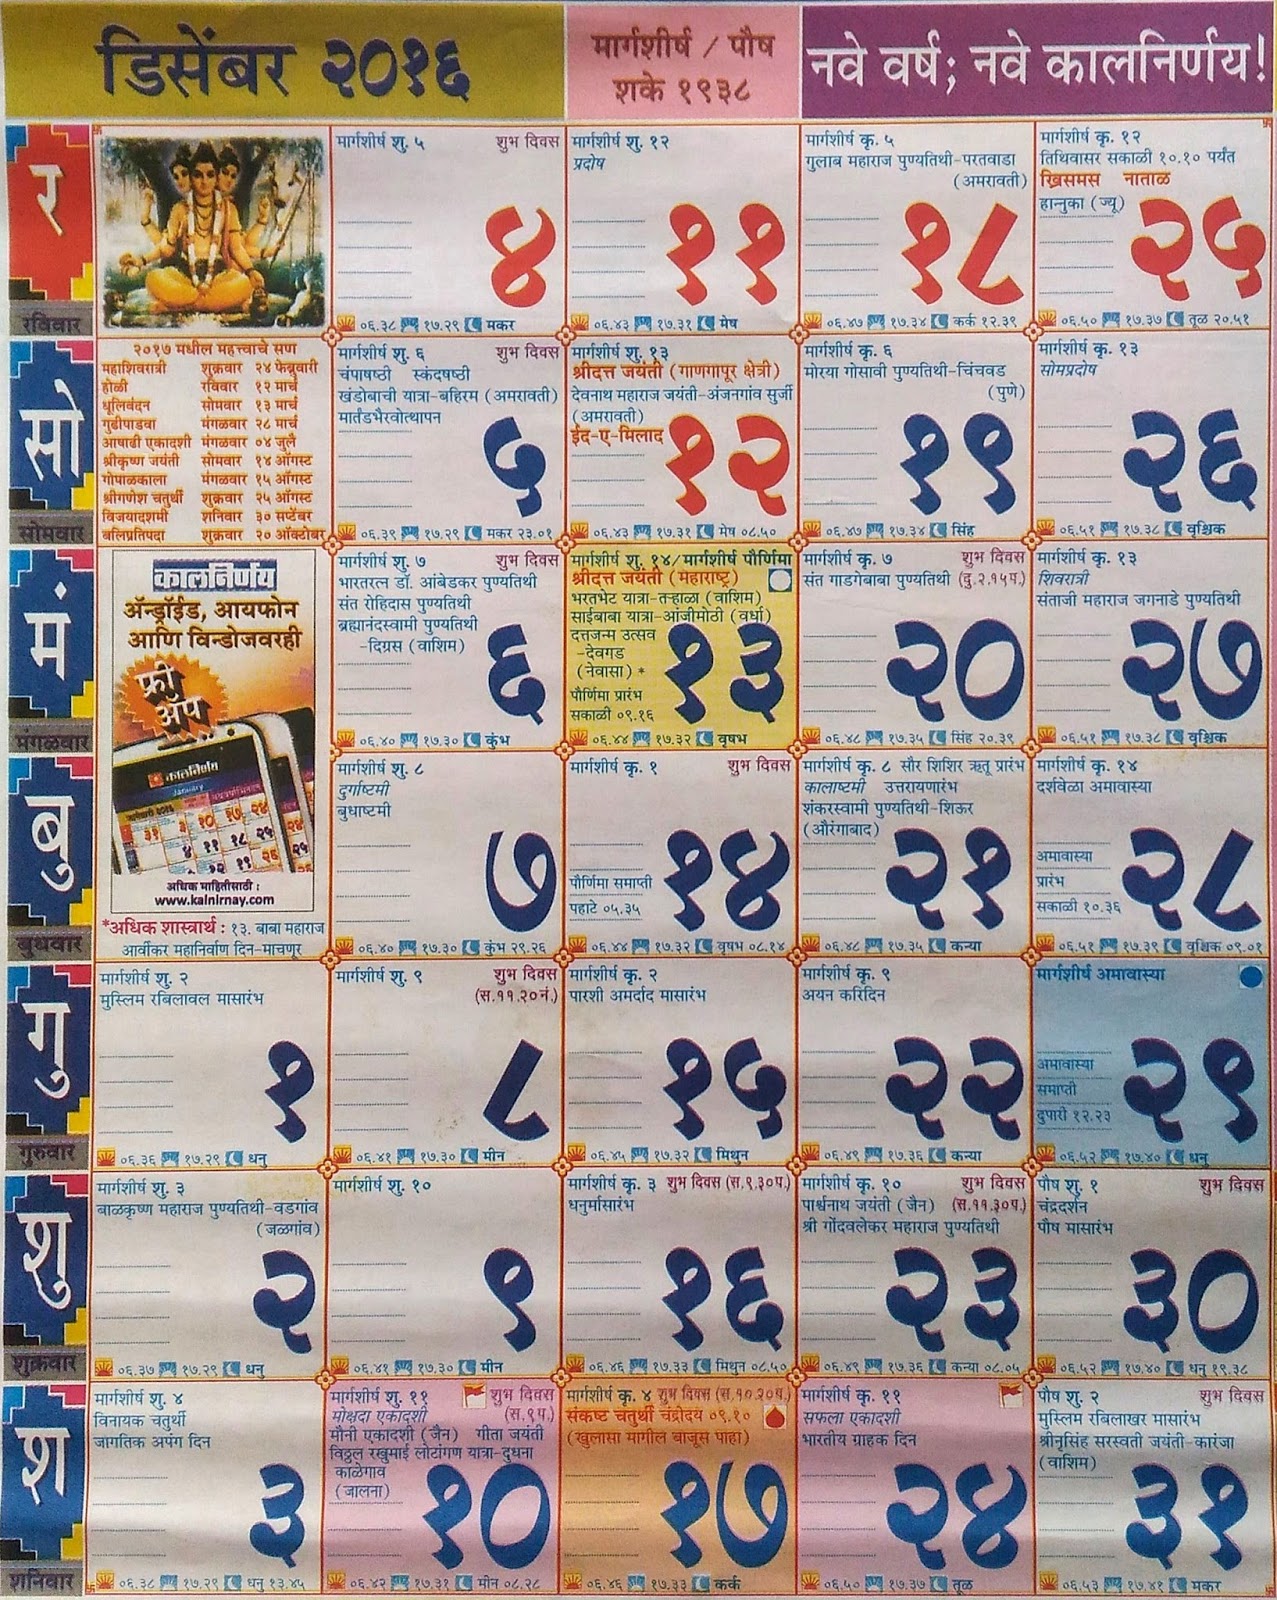 डिसेंबर २०१६
मार्गशीर्ष / पौष
शके १९३८
नवे वर्ष; नवे कालनिर्णय!
र
रविवार
मार्गशीर्ष शु. ५ शुभ दिवस
४
०६.३८ १७.२९ मकर
मार्गशीर्ष शु. १२
प्रदोष
११
०६.४३ १७.३१ मेष
मार्गशीर्ष कृ. ५
गुलाब महाराज पुण्यतिथी-परतवाडा
(अमरावती)
१८
०६.४७ १७.३४ कर्क १२.३९
मार्गशीर्ष कृ. १२
तिथिवासर सकाळी १०.१० पर्यंत
ख्रिसमस नाताळ
हान्नुका (ज्यू)
२५
०६.५० १७.३७ तूळ २०.५१
सो
सोमवार
२०१७ मधील महत्त्वाचे सण
महाशिवरात्री शुक्रवार २४ फेब्रुवारी
होळी रविवार १२ मार्च
धूलिवंदन सोमवार १३ मार्च
गुढीपाडवा मंगळवार २८ मार्च
आषाढी एकादशी मंगळवार ०४ जुलै
श्रीकृष्ण जयंती सोमवार १४ ऑगस्ट
गोपाळकाला मंगळवार १५ ऑगस्ट
श्रीगणेश चतुर्थी शुक्रवार २५ ऑगस्ट
विजयादशमी शनिवार ३० सप्टेंबर
बलिप्रतिपदा शुक्रवार २० ऑक्टोबर
मार्गशीर्ष शु. ६ शुभ दिवस
चंपाषष्ठी स्कंदषष्ठी
खंडोबाची यात्रा-बहिरम (अमरावती)
मार्तंडभैरवोत्थापन
५
०६.३९ १७.२९ मकर २३.०१
मार्गशीर्ष शु. १३
श्रीदत्त जयंती (गाणगापूर क्षेत्री)
देवनाथ महाराज जयंती-अंजनगांव सुर्जी
(अमरावती)
ईद-ए-मिलाद
१२
०६.४३ १७.३१ मेष ०८.५०
मार्गशीर्ष कृ. ६
मोरया गोसावी पुण्यतिथी-चिंचवड
(पुणे)
१९
०६.४७ १७.३४ सिंह
मार्गशीर्ष कृ. १३
सोमप्रदोष
२६
०६.५१ १७.३८ वृश्चिक
मं
मंगळवार
कालनिर्णय
ॲन्ड्रॉईड, आयफोन
आणि विन्डोजवरही
फ्री
ॲप
कालनिर्णय
January
अधिक माहितीसाठी :
www.kalnirnay.com
*अधिक शास्त्रार्थ : १३. बाबा महाराज
आर्वीकर महानिर्वाण दिन-माचणूर
मार्गशीर्ष शु. ७ शुभ दिवस
भारतरत्न डॉ. आंबेडकर पुण्यतिथी
संत रोहिदास पुण्यतिथी
ब्रह्मानंदस्वामी पुण्यतिथी
-दिग्रस (वाशिम)
६
०६.४० १७.३० कुंभ
मार्गशीर्ष शु. १४/मार्गशीर्ष पौर्णिमा
श्रीदत्त जयंती (महाराष्ट्र)
भरतभेट यात्रा-तऱ्हाळा (वाशिम)
साईबाबा यात्रा-आंजीमोठी (वर्धा)
दत्तजन्म उत्सव
-देवगड
(नेवासा) *
पौर्णिमा प्रारंभ
सकाळी ०९.१६
१३
०६.४४ १७.३२ वृषभ
मार्गशीर्ष कृ. ७ शुभ दिवस
संत गाडगेबाबा पुण्यतिथी (दु.२.१५प.)
२०
०६.४८ १७.३५ सिंह २०.३९
मार्गशीर्ष कृ. १३
शिवरात्री
संताजी महाराज जगनाडे पुण्यतिथी
२७
०६.५१ १७.३८ वृश्चिक
बु
बुधवार
मार्गशीर्ष शु. ८
दुर्गाष्टमी
बुधाष्टमी
७
०६.४० १७.३० कुंभ २९.२६
मार्गशीर्ष कृ. १ शुभ दिवस
पौर्णिमा समाप्ती
पहाटे ०५.३५
१४
०६.४४ १७.३२ वृषभ ०८.१४
मार्गशीर्ष कृ. ८ सौर शिशिर ऋतू प्रारंभ
कालाष्टमी उत्तरायणारंभ
शंकरस्वामी पुण्यतिथी-शिऊर
(औरंगाबाद)
२१
०६.४८ १७.३५ कन्या
मार्गशीर्ष कृ. १४
दर्शवेळा अमावास्या
अमावास्या
प्रारंभ
सकाळी १०.३६
२८
०६.५१ १७.३९ वृश्चिक ०९.०१
गु
गुरुवार
मार्गशीर्ष शु. २
मुस्लिम रबिलावल मासारंभ
१
०६.३६ १७.२९ धनु
मार्गशीर्ष शु. ९ शुभ दिवस
(स.११.२०नं.)
८
०६.४१ १७.३० मीन
मार्गशीर्ष कृ. २
पारशी अमर्दाद मासारंभ
१५
०६.४५ १७.३२ मिथुन
मार्गशीर्ष कृ. ९
अयन करिदिन
२२
०६.४९ १७.३६ कन्या
मार्गशीर्ष अमावास्या
अमावास्या
समाप्ती
दुपारी १२.२३
२९
०६.५२ १७.४० धनु
शु
शुक्रवार
मार्गशीर्ष शु. ३
बाळकृष्ण महाराज पुण्यतिथी-वडगांव
(जळगांव)
२
०६.३७ १७.२९ धनु
मार्गशीर्ष शु. १०
९
०६.४१ १७.३० मीन
मार्गशीर्ष कृ. ३ शुभ दिवस (स.९.३०प.)
धनुर्मासारंभ
१६
०६.४६ १७.३३ मिथुन ०८.५०
मार्गशीर्ष कृ. १० शुभ दिवस
पार्श्वनाथ जयंती (जैन) (स.११.३०प.)
श्री गोंदवलेकर महाराज पुण्यतिथी
२३
०६.४९ १७.३६ कन्या ०८.०५
पौष शु. १ शुभ दिवस
चंद्रदर्शन
पौष मासारंभ
३०
०६.५२ १७.४० धनु १९.३८
श
शनिवार
मार्गशीर्ष शु. ४
विनायक चतुर्थी
जागतिक अपंग दिन
३
०६.३८ १७.२९ धनु १३.४५
मार्गशीर्ष शु. ११ शुभ दिवस
मोक्षदा एकादशी (स.९प.)
मौनी एकादशी (जैन) गीता जयंती
विठ्ठल रखुमाई लोटांगण यात्रा-दुधना
काळेगाव
(जालना)
१०
०६.४२ १७.३१ मीन ०८.२८
मार्गशीर्ष कृ. ४ शुभ दिवस (स.१०.२०प.)
संकष्ट चतुर्थी चंद्रोदय ०९.१०
(खुलासा मागील बाजूस पाहा)
१७
०६.४६ १७.३३ कर्क
मार्गशीर्ष कृ. ११
सफला एकादशी
भारतीय ग्राहक दिन
२४
०६.५० १७.३७ तूळ
पौष शु. २ शुभ दिवस
मुस्लिम रबिलाखर मासारंभ
श्रीनृसिंह सरस्वती जयंती-कारंजा
(वाशिम)
३१
०६.५३ १७.४१ मकर